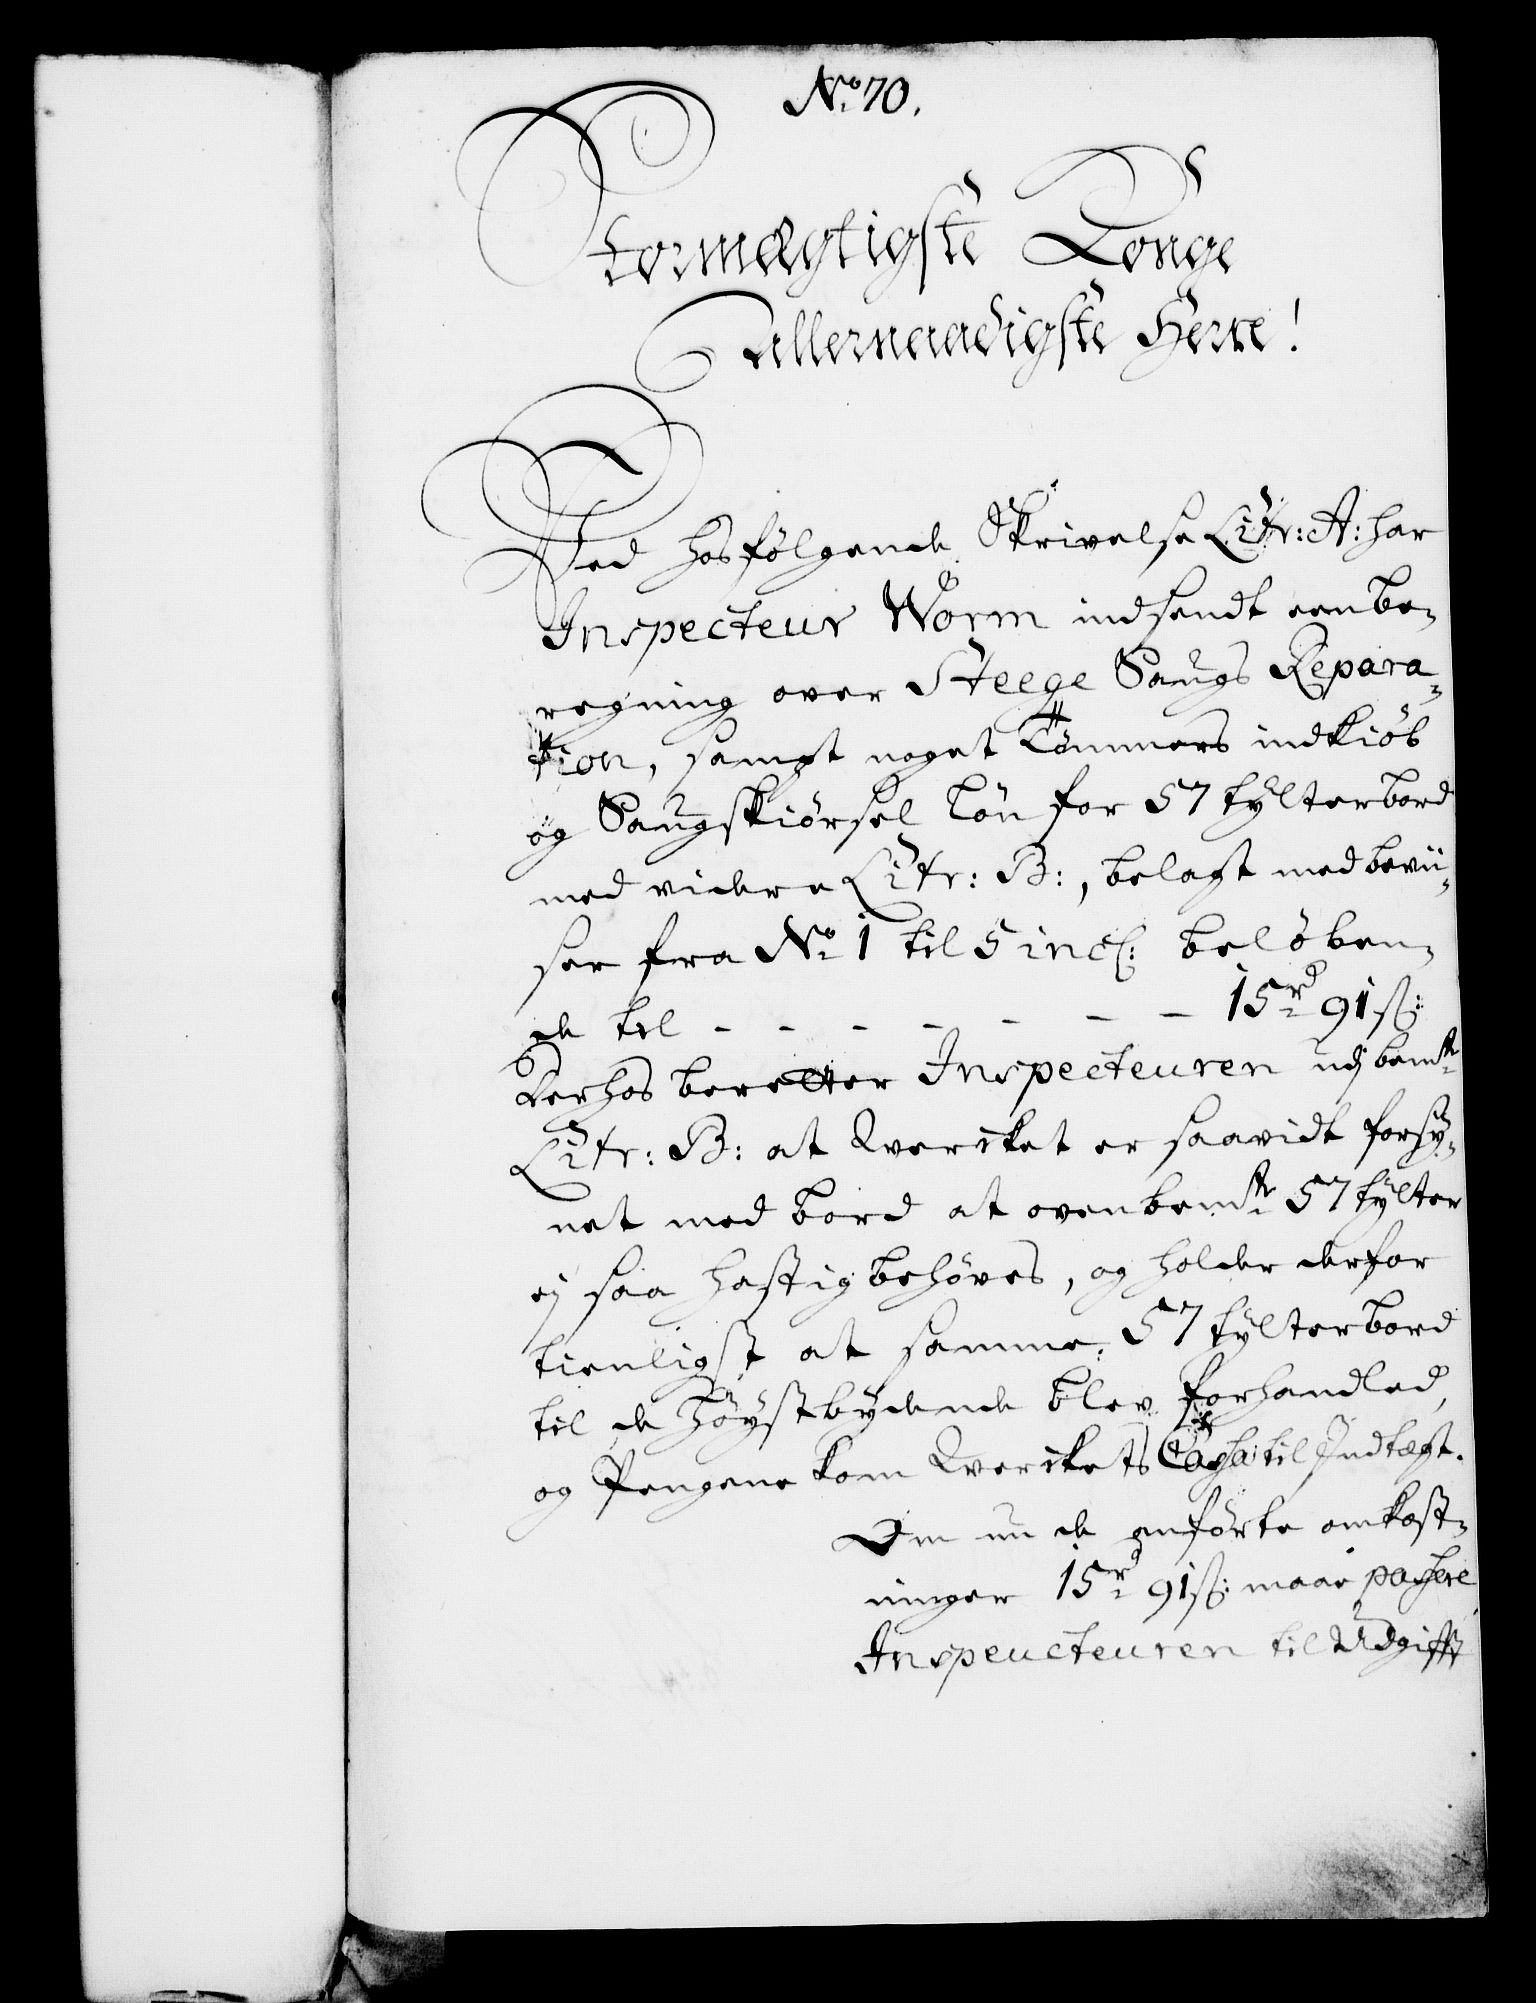 No. 70.
Stormægtigste Konge
Allernaadigste Herre!
Ved hosfølgende Skrivelse Litr: A: har
Inspecteur Worm indsendt een be-
regning over Steege Saugs Repara-
tion, sampt noget Tömmers indkiöb
og Saugskiörsel Lön for 57 tylter bord
med videre Litr: B:, belagt med bevii-
ser fra No. 1 til 5 incl: belöben-
de til - - - - - - - 15 rd 91 s:
Derhos beretter Inspecteuren udj bemte
Litr: B: at Qvercket er saavidt forsÿ-
net med bord at ovenbemte 57 tylter
ej saa hastig behöves, og holder derfor
tienligst at samme 57 tylter bord
til de höystbydende blev forhandled,
og Pengene kom Qverckets Cassa til Indtægt.
Om nu de anförte omkost-
ninger 15 rd 91 s: maae passere
Inspeucteuren til Udgifft